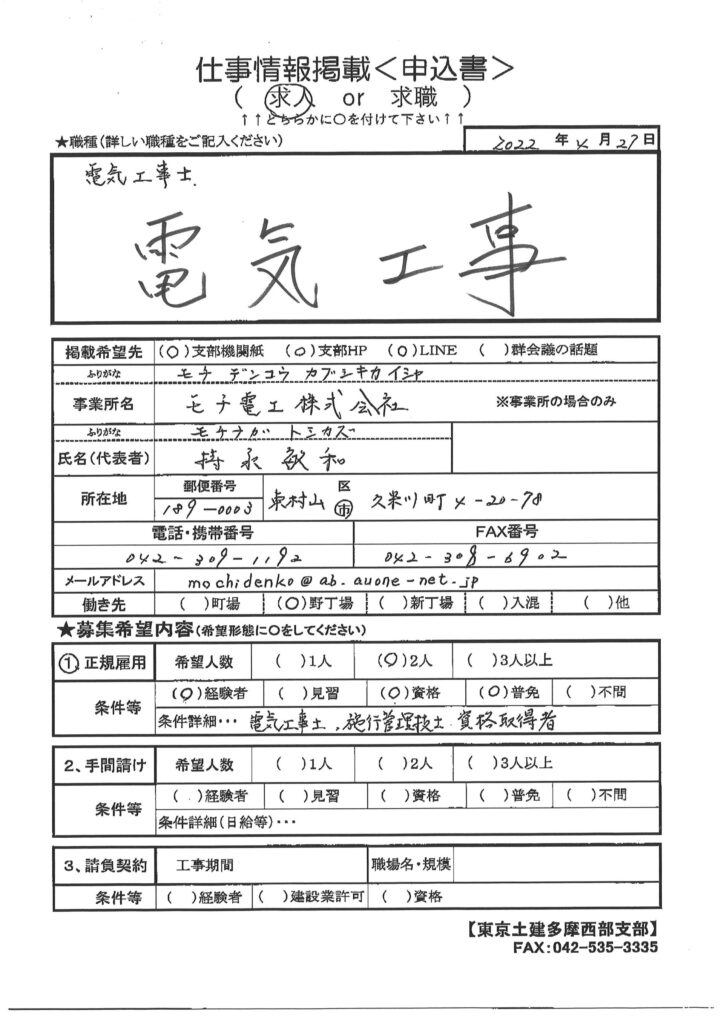 仕事情報掲載＜申込書＞
( 求人 or 求職 )
↑↑どちらかに○を付けて下さい↑↑
★職種(詳しい職種をご記入ください)
2022 年 4 月 27 日
電気工事士.
電気工事
掲載希望先 (○)支部機関紙 (○)支部HP (○)LINE ( )群会議の話題
ふりがな モチ デンコウ カブシキカイシャ
事業所名 モチ電工株式会社 ※事業所の場合のみ
ふりがな モチナガ トシカズ
氏名(代表者) 持永敏和
所在地 郵便番号 189-0003 東村山 区 市 久米川町4-20-78
電話・携帯番号 FAX番号
042-309-1192 042-308-6902
メールアドレス mochidenko@ab.auone-net.jp
働き先 ( )町場 (○)野丁場 ( )新丁場 ( )入混 ( )他
★募集希望内容(希望形態に○をしてください)
①正規雇用 希望人数 ( )1人 (○)2人 ( )3人以上
条件等 (○)経験者 ( )見習 (○)資格 (○)普免 ( )不問
条件詳細・・・ 電気工事士、施行管理技士 資格取得者
2、手間請け 希望人数 ( )1人 ( )2人 ( )3人以上
条件等 ( )経験者 ( )見習 ( )資格 ( )普免 ( )不問
条件詳細(日給等)・・・
3、請負契約 工事期間 職場名・規模
条件等 ( )経験者 ( )建設業許可 ( )資格
【東京土建多摩西部支部】
FAX:042-535-3335